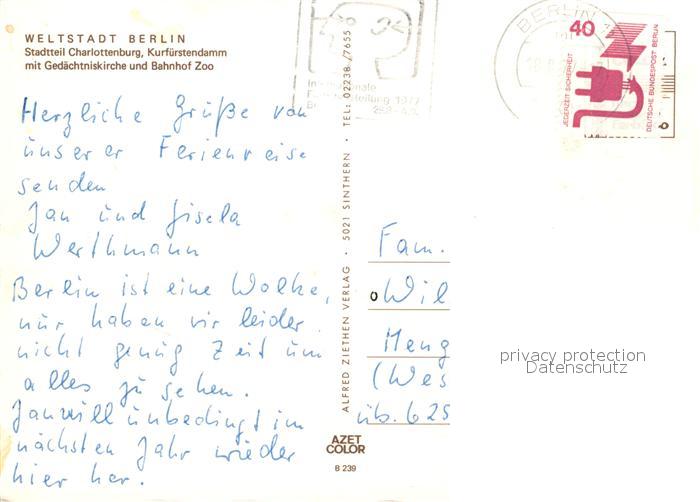 WELTSTADT BERLIN
Stadtteil Charlottenburg, Kurfürstendamm
mit Gedächtniskirche und Bahnhof Zoo
Herzliche Grüße von
unserer Ferienreise
senden
Jan und Gisela
Werthmann
Berlin ist eine Wolke,
nur haben wir leider
nicht genug Zeit um
alles zu sehen.
Jan will unbedingt im
nächsten Jahr wieder
hier her.
ALFRED ZIETHEN VERLAG · 5021 SINTHERN · TEL: 02238 /7655
AZET
COLOR
B 239
Internationale
Funkausstellung 1977
BERLIN
40
JEDERZEIT SICHERHEIT
DEUTSCHE BUNDESPOST BERLIN
Fam.
Wil
Meng
(Wes
üb. 625
privacy protection
Datenschutz